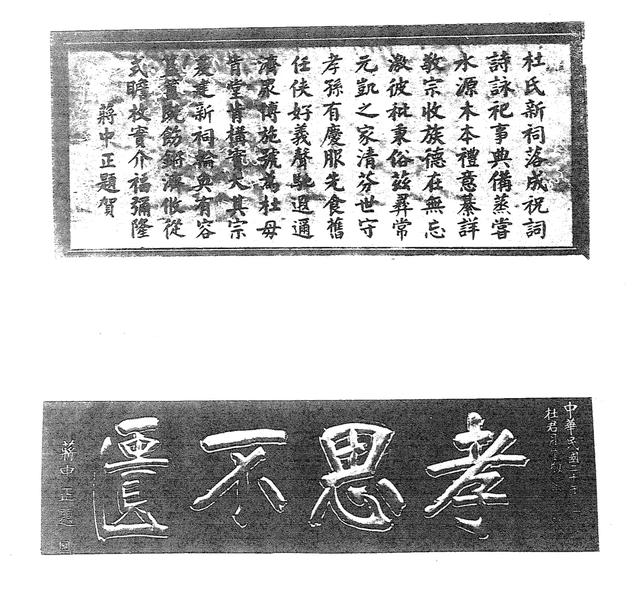 杜氏新祠落成祝詞
詩詠祀事典備蒸嘗
水源木本禮意綦詳
敬宗收族德在無忘
彼秕秉俗茲彝常
元凱之家清芬世守
孝孫有慶服先食舊
任俠好義聲馳遐邇
濟眾博施號為杜母
肯堂肯構實大其宗
爰建新祠輪奐有容
既飭蹌濟攸從
式瞻枚實介福彌隆
蔣中正題賀
中華民國二十
杜君月
孝思不匱
蔣中正